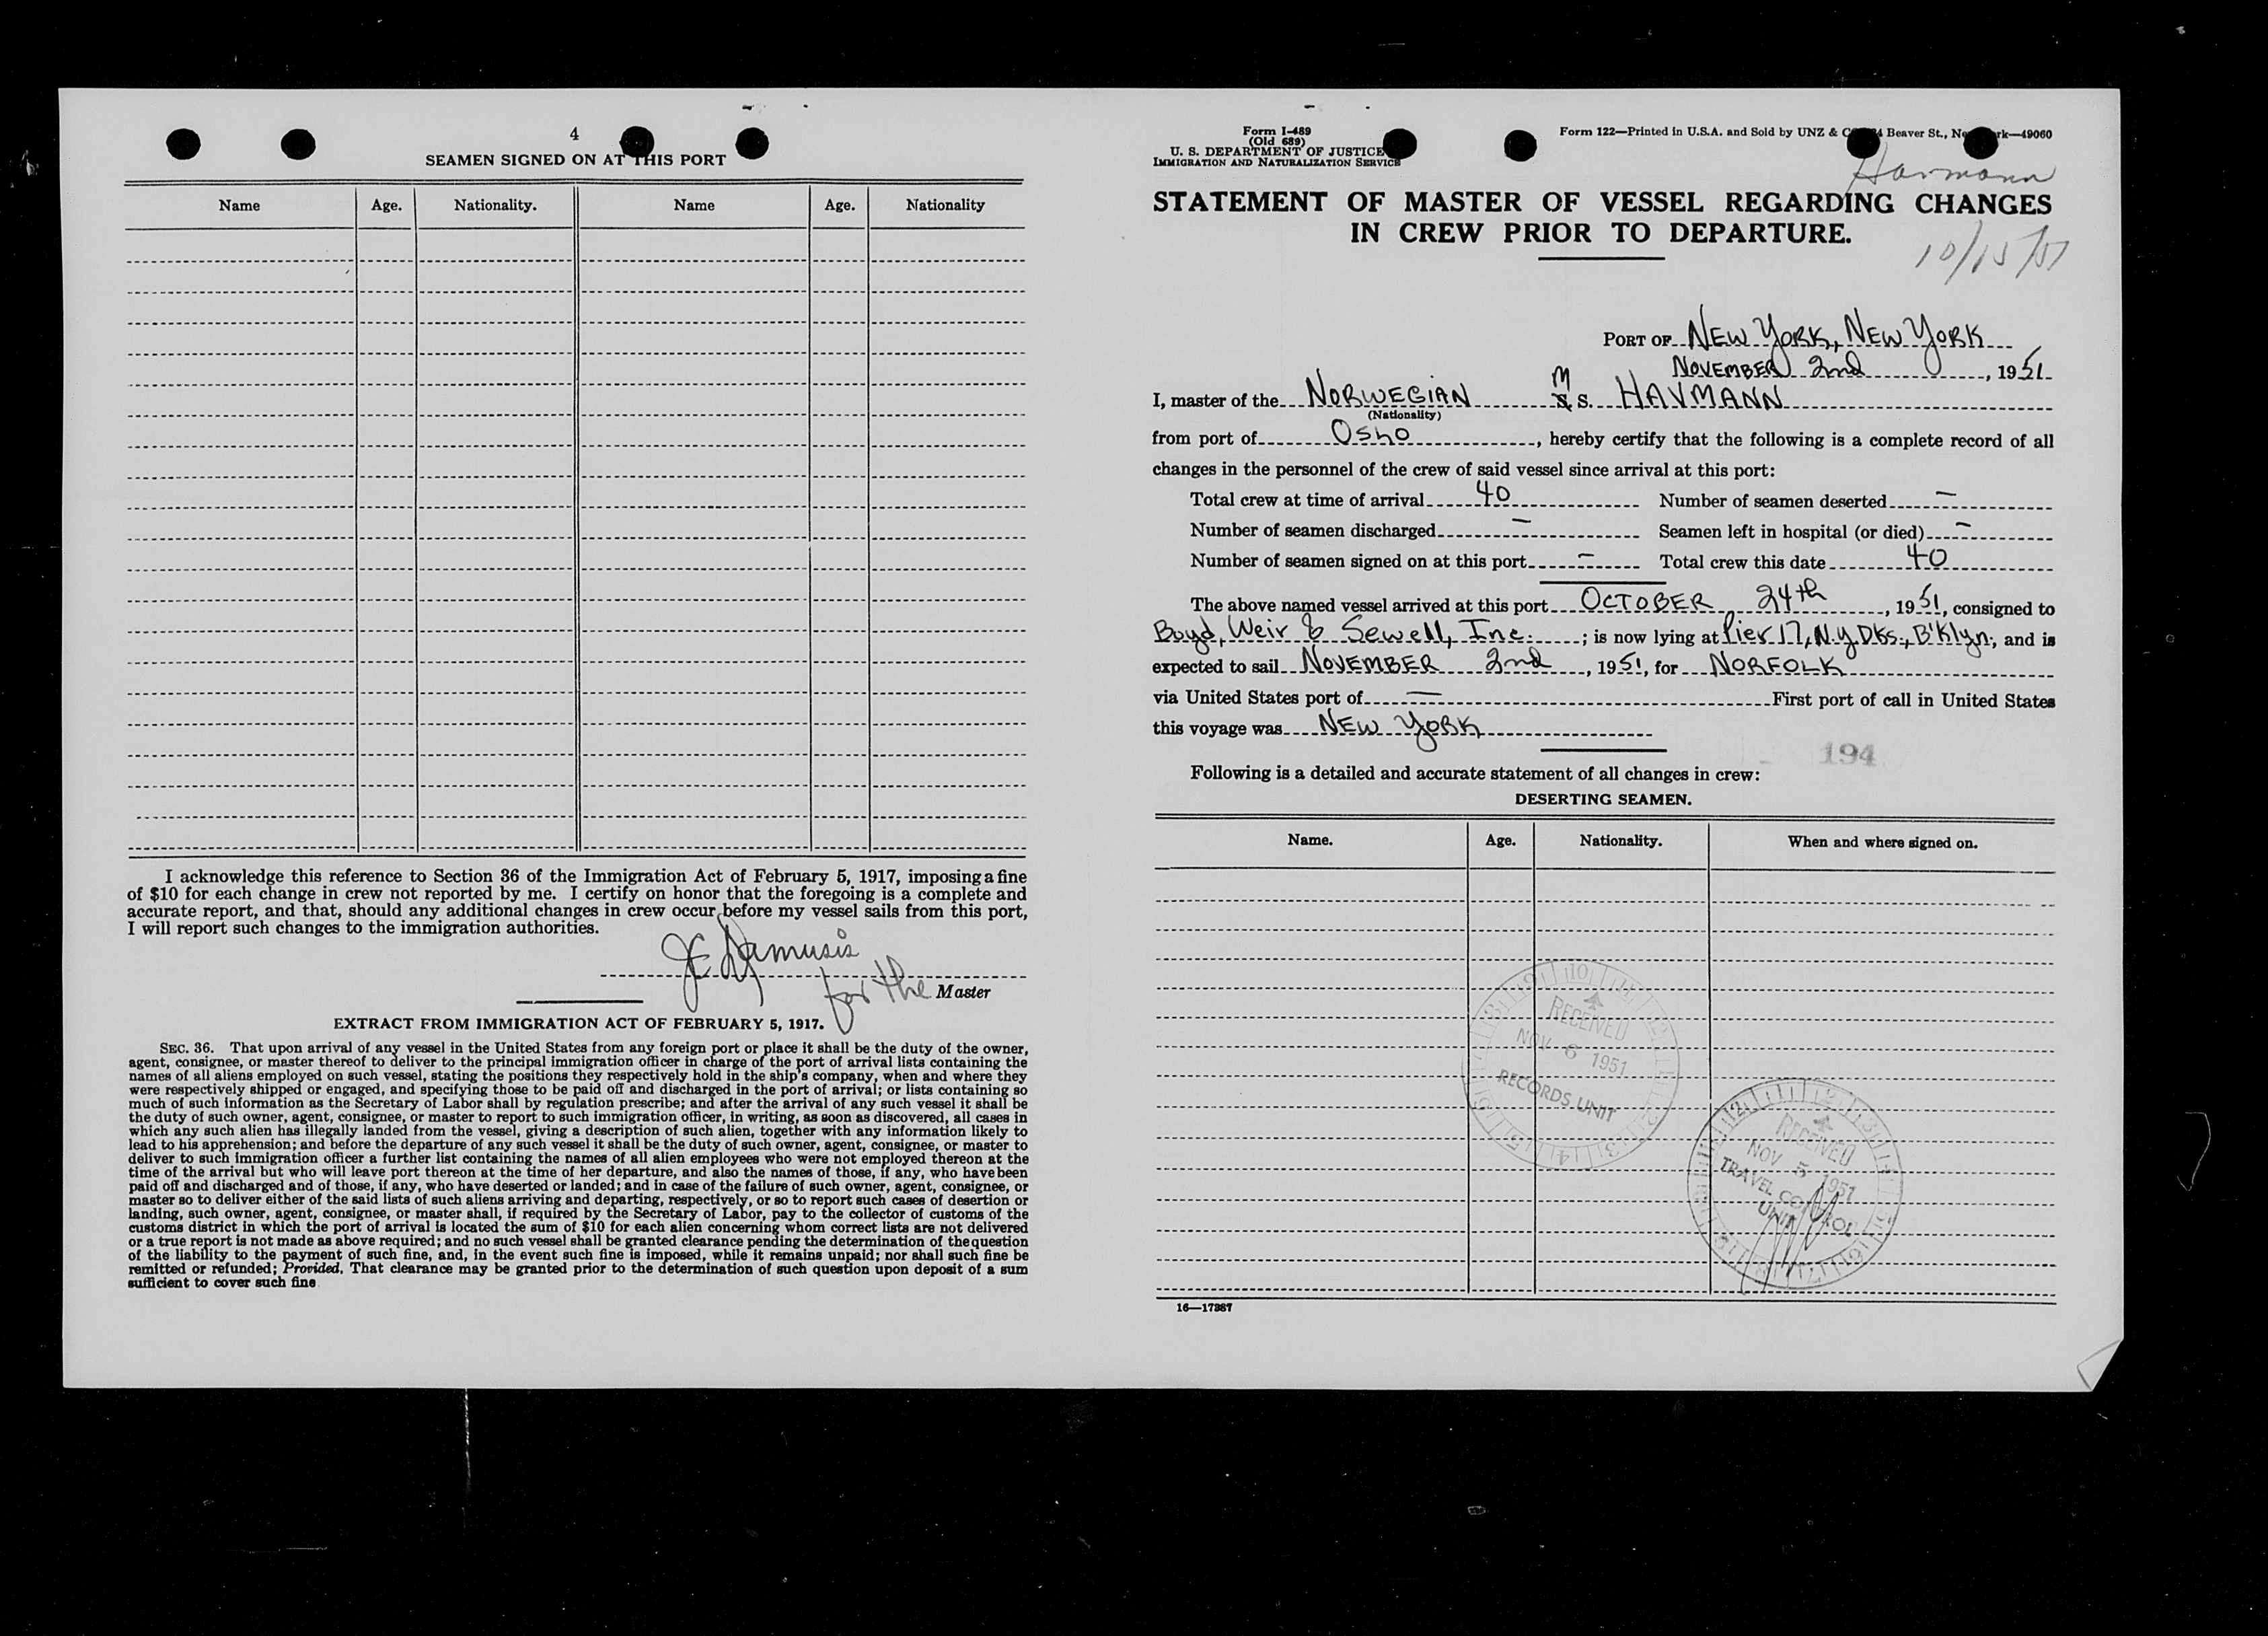 4
SEAMEN SIGNED ON AT THIS PORT
Name Age. Nationality. Name Age. Nationality
I acknowledge this reference to Section 36 of the Immigration Act of February 5, 1917, imposing a fine
of $10 for each change in crew not reported by me. I certify on honor that the foregoing is a complete and
accurate report, and that, should any additional changes in crew occur before my vessel sails from this port,
I will report such changes to the immigration authorities.
for the Master
EXTRACT FROM IMMIGRATION ACT OF FEBRUARY 5, 1917.
SEC. 36. That upon arrival of any vessel in the United States from any foreign port or place it shall be the duty of the owner,
agent, consignee, or master thereof to deliver to the principal immigration officer in charge of the port of arrival lists containing the
names of all aliens employed on such vessel, stating the positions they respectively hold in the ship's company, when and where they
were respectively shipped or engaged, and specifying those to be paid off and discharged in the port of arrival; or lists containing so
much of such information as the Secretary of Labor shall by regulation prescribe; and after the arrival of any such vessel it shall be
the duty of such owner, agent, consignee, or master to report to such immigration officer, in writing, as soon as discovered, all cases in
which any such alien has illegally landed from the vessel, giving a description of such alien, together with any information likely to
lead to his apprehension; and before the departure of any such vessel it shall be the duty of such owner, agent, consignee, or master to
deliver to such immigration officer a further list containing the names of all alien employees who were not employed thereon at the
time of the arrival but who will leave port thereon at the time of her departure, and also the names of those, if any, who have been
paid off and discharged and of those, if any, who have deserted or landed; and in case of the failure of such owner, agent, consignee, or
master so to deliver either of the said lists of such aliens arriving and departing, respectively, or so to report such cases of desertion or
landing, such owner, agent, consignee, or master shall, if required by the Secretary of Labor, pay to the collector of customs of the
customs district in which the port of arrival is located the sum of $10 for each alien concerning whom correct lists are not delivered
or a true report is not made as above required; and no such vessel shall be granted clearance pending the determination of the question
of the liability to the payment of such fine, and, in the event such fine is imposed, while it remains unpaid; nor shall such fine be
remitted or refunded; Provided, That clearance may be granted prior to the determination of such question upon deposit of a sum
sufficient to cover such fine
Form I-489
(Old 689)
U. S. DEPARTMENT OF JUSTICE
IMMIGRATION AND NATURALIZATION SERVICE
Form 122—Printed in U.S.A. and Sold by UNZ & Beaver St., 49060
Havmann
STATEMENT OF MASTER OF VESSEL REGARDING CHANGES
IN CREW PRIOR TO DEPARTURE.
10/15/51
PORT OF NEW YORK, NEW YORK
NOVEMBER 2nd, 1951
I, master of the NORWEGIAN M S. HAVMANN
(Nationality)
from port of OSLO, hereby certify that the following is a complete record of all
changes in the personnel of the crew of said vessel since arrival at this port:
Total crew at time of arrival 40 Number of seamen deserted —
Number of seamen discharged — Seamen left in hospital (or died) —
Number of seamen signed on at this port — Total crew this date 40
The above named vessel arrived at this port OCTOBER 24th, 1951, consigned to
Boyd, Weir & Sewell, Inc.; is now lying at Pier 17, N.Y. Dks., B'klyn., and is
expected to sail NOVEMBER 2nd, 1951, for NORFOLK
via United States port of — First port of call in United States
this voyage was NEW YORK
194
Following is a detailed and accurate statement of all changes in crew:
DESERTING SEAMEN.
Name. Age. Nationality. When and where signed on.
RECEIVED
NOV 6 1951
RECORDS UNIT
RECEIVED
NOV 5 1951
TRAVEL CONTROL
UNIT
16—17387